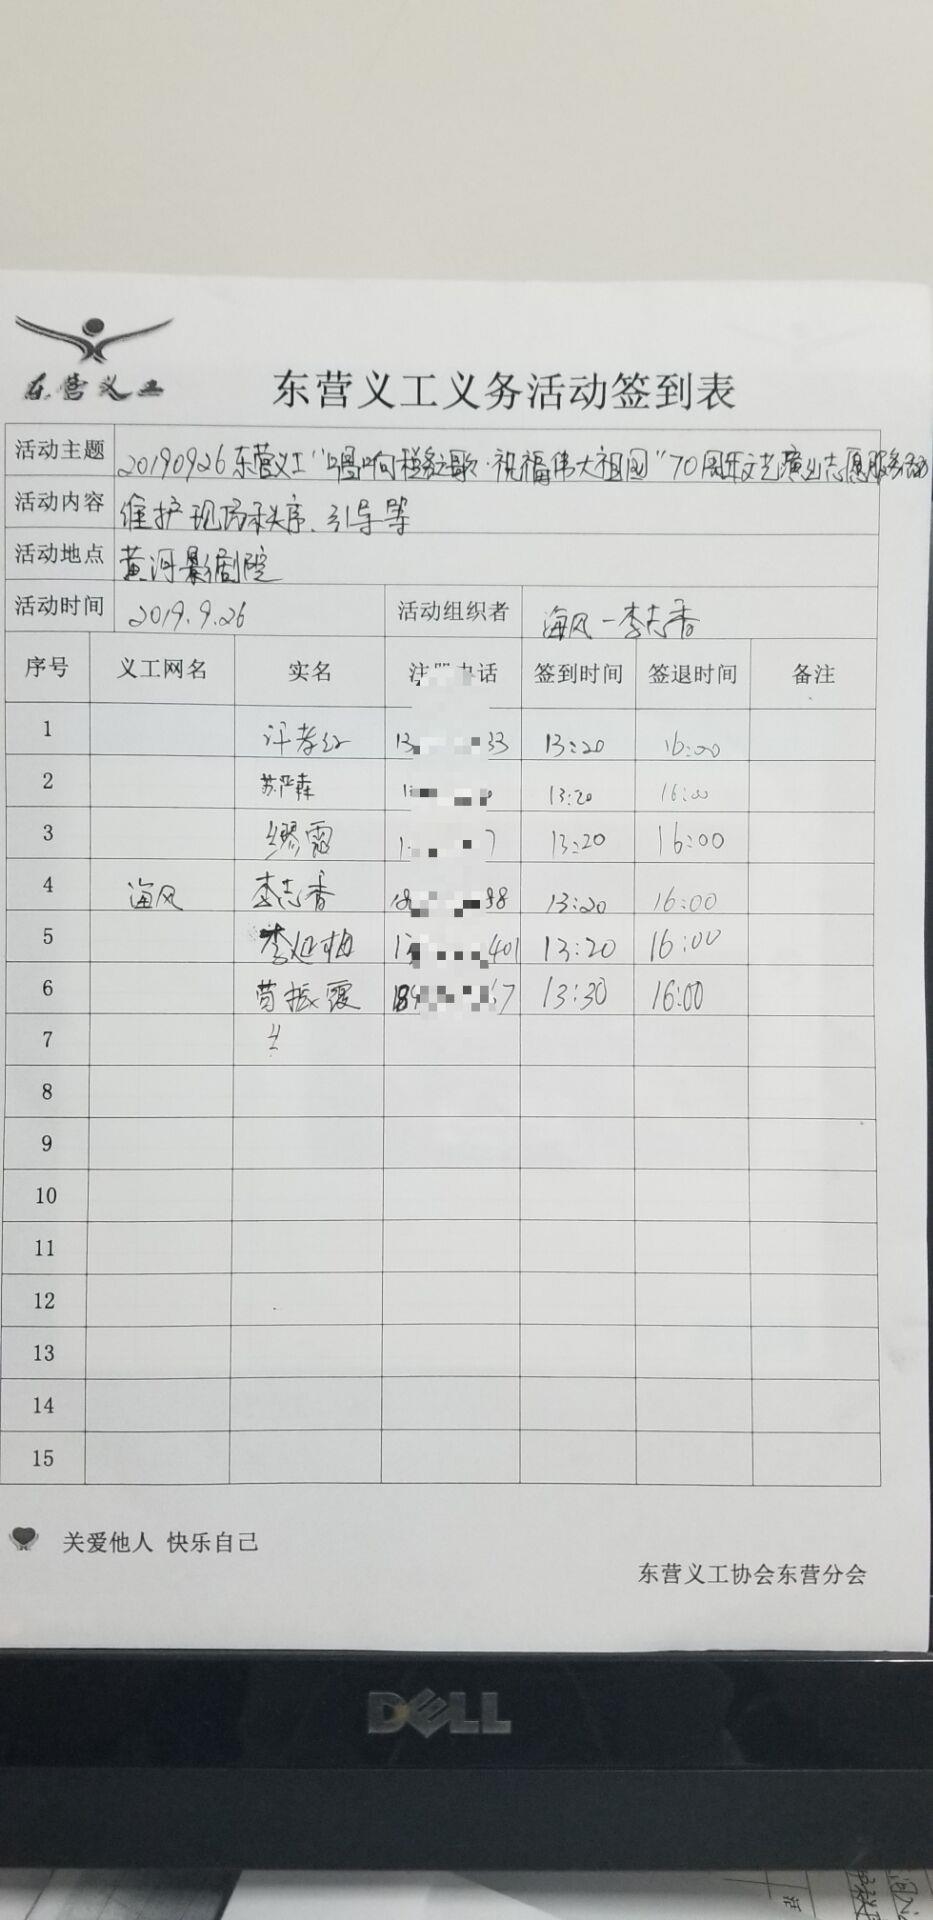 东营义工
东营义工义务活动签到表
活动主题 20190926东营义工"唱响税务之歌·祝福伟大祖国"70周年文艺演出志愿服务活动
活动内容 维护现场秩序、引导等
活动地点 黄河影剧院
活动时间 2019.9.26 活动组织者 海风-李志香
序号 义工网名 实名 注册电话 签到时间 签退时间 备注
1 13 33 13:20 16:00
2 13:20 16:00
3 缪霞 1 7 13:20 16:00
4 海风 李志香 18 88 13:20 16:00
5 李延梅 401 13:20 16:00
6 苟振霞 18 67 13:30 16:00
7
8
9
10
11
12
13
14
15
关爱他人 快乐自己
东营义工协会东营分会
DELL